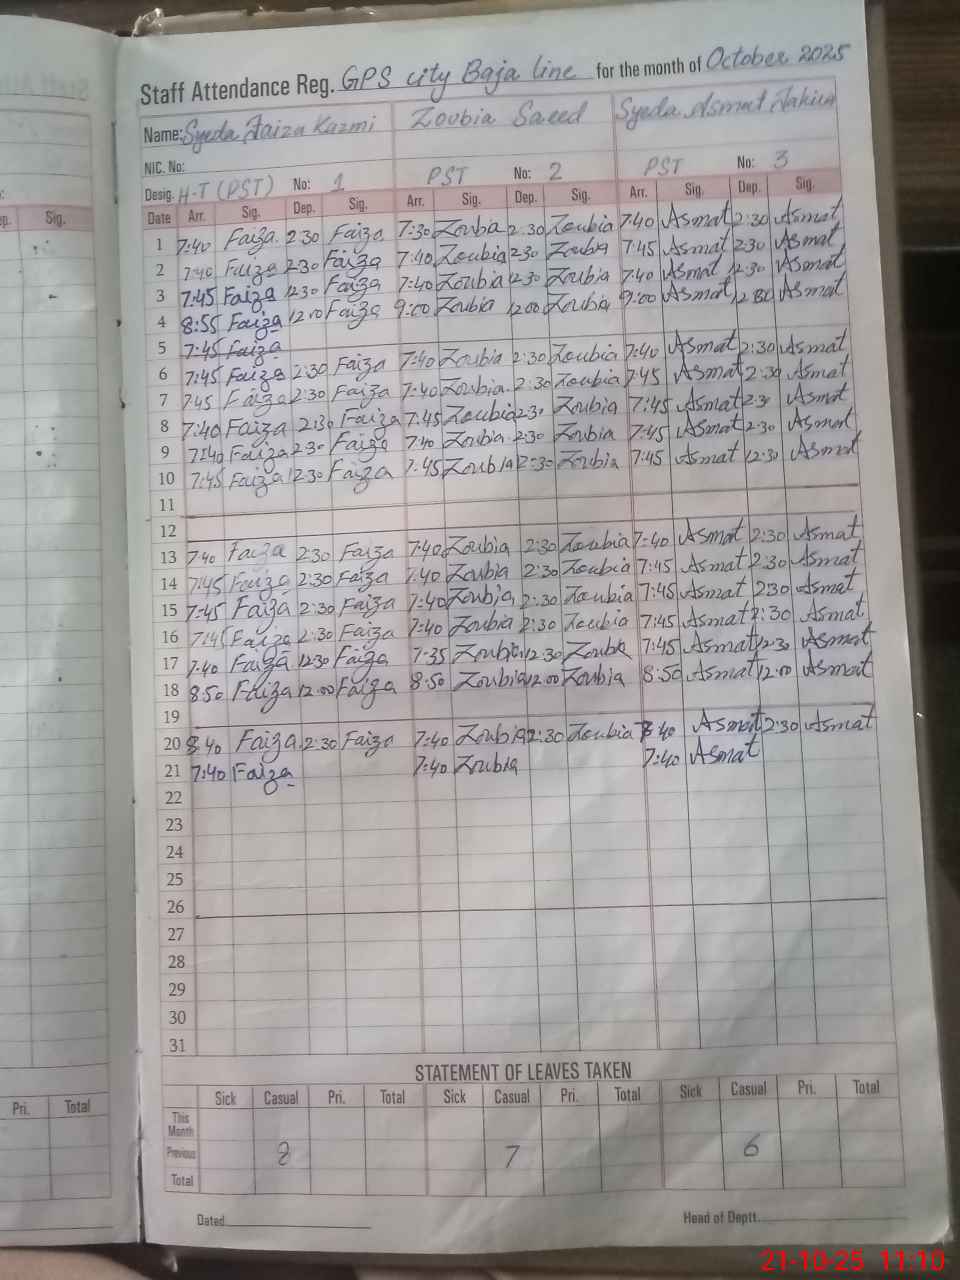 Staff Attendance Reg. GPS city Baja line for the month of October 2025
Name: Syeda Faiza Kazmi Zoubia Saeed Syeda Asmat Fakira
NIC. No:
Desig. H-T (PST) No: 1 PST No: 2 PST No: 3
Date Arr. Sig. Dep. Sig. Arr. Sig. Dep. Sig. Arr. Sig. Dep. Sig.
1 7:40 Faiza 2:30 Faiza 7:30 Zouba 2:30 Zoubia 7:40 Asmat 2:30 Asmat
2 7:40 Faiza 2:30 Faiza 7:40 Zoubia 2:30 Zoubia 7:45 Asmat 2:30 Asmat
3 7:45 Faiza 12:30 Faiza 7:40 Zoubia 12:30 Zoubia 7:40 Asmat 12:30 Asmat
4 8:55 Faiza 12:00 Faiza 9:00 Zoubia 12:00 Zoubia 9:00 Asmat Asmat
5 7:45 Faiza
6 7:45 Faiza 2:30 Faiza 7:40 Zoubia 2:30 Zoubia 7:40 Asmat 2:30 Asmat
7 7:45 Faiza 2:30 Faiza 7:40 Zoubia 2:30 Zoubia 7:45 Asmat 2:30 Asmat
8 7:40 Faiza 2:30 Faiza 7:45 Zoubia 2:30 Zoubia 7:45 Asmat 2:30 Asmat
9 7:40 Faiza 2:30 Faiza 7:40 Zoubia 2:30 Zoubia 7:45 Asmat 2:30 Asmat
10 7:45 Faiza 12:30 Faiza 7:45 Zoubia 12:30 Zoubia 7:45 Asmat 12:30 Asmat
11
12
13 7:40 Faiza 2:30 Faiza 7:40 Zoubia 2:30 Zoubia 7:40 Asmat 2:30 Asmat
14 7:45 Faiza 2:30 Faiza 7:40 Zoubia 2:30 Zoubia 7:45 Asmat 2:30 Asmat
15 7:45 Faiza 2:30 Faiza 7:40 Zoubia 2:30 Zoubia 7:45 Asmat 2:30 Asmat
16 7:45 Faiza 2:30 Faiza 7:40 Zoubia 2:30 Zoubia 7:45 Asmat 2:30 Asmat
17 7:40 Faiza 12:30 Faiza 7:35 Zoubia 12:30 Zoubia 7:45 Asmat 12:30 Asmat
18 8:50 Faiza 12:00 Faiza 8:50 Zoubia 12:00 Zoubia 8:50 Asmat 12:00 Asmat
19
20 Faiza 2:30 Faiza 7:40 Zoubia 2:30 Zoubia Asmat 2:30 Asmat
21 7:40 Faiza 7:40 Zoubia 7:40 Asmat
22
23
24
25
26
27
28
29
30
31
STATEMENT OF LEAVES TAKEN
Sick Casual Pri. Total Sick Casual Pri. Total Sick Casual Pri. Total
This Month
Previous 8 7 6
Total
Dated Head of Deptt.
Sig.
Pri. Total
21-10-25 11:10